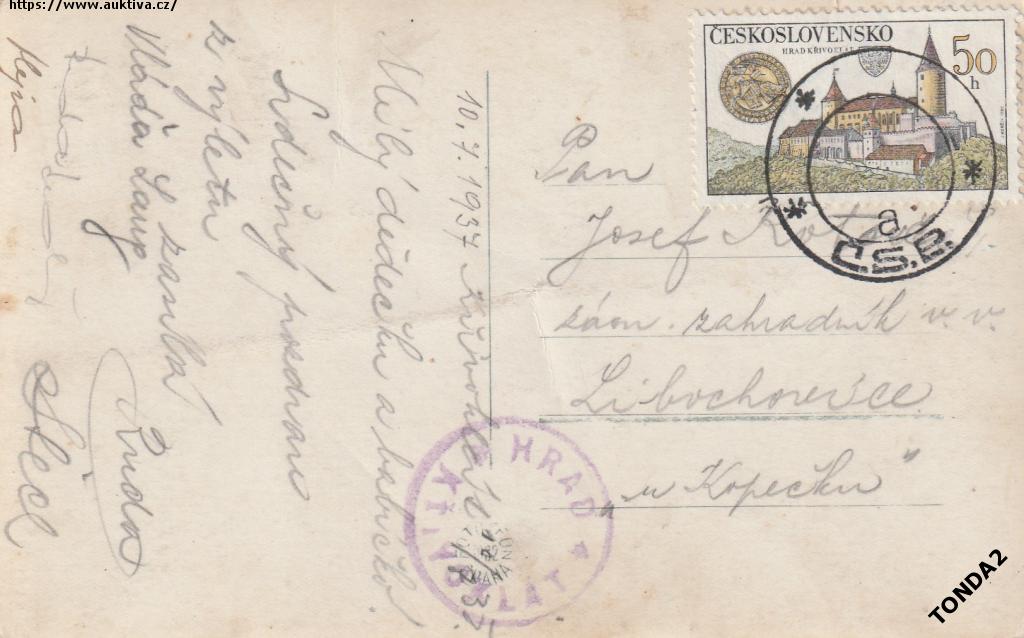 https://www.auktiva.cz/
ČESKOSLOVENSKO
HRAD KŘIVOKLÁT
50 h
a
Č.S.P.
10.7.1937 Křivoklát
Milý dědečku a babičko!
Srdečný pozdrav
z výletu
zasílá
Vláďa
Ruda
Pan
Josef
zám. zahradník v. v.
Libochovice
„u Kopečku"
HRAD KŘIVOKLÁT
TONDA2